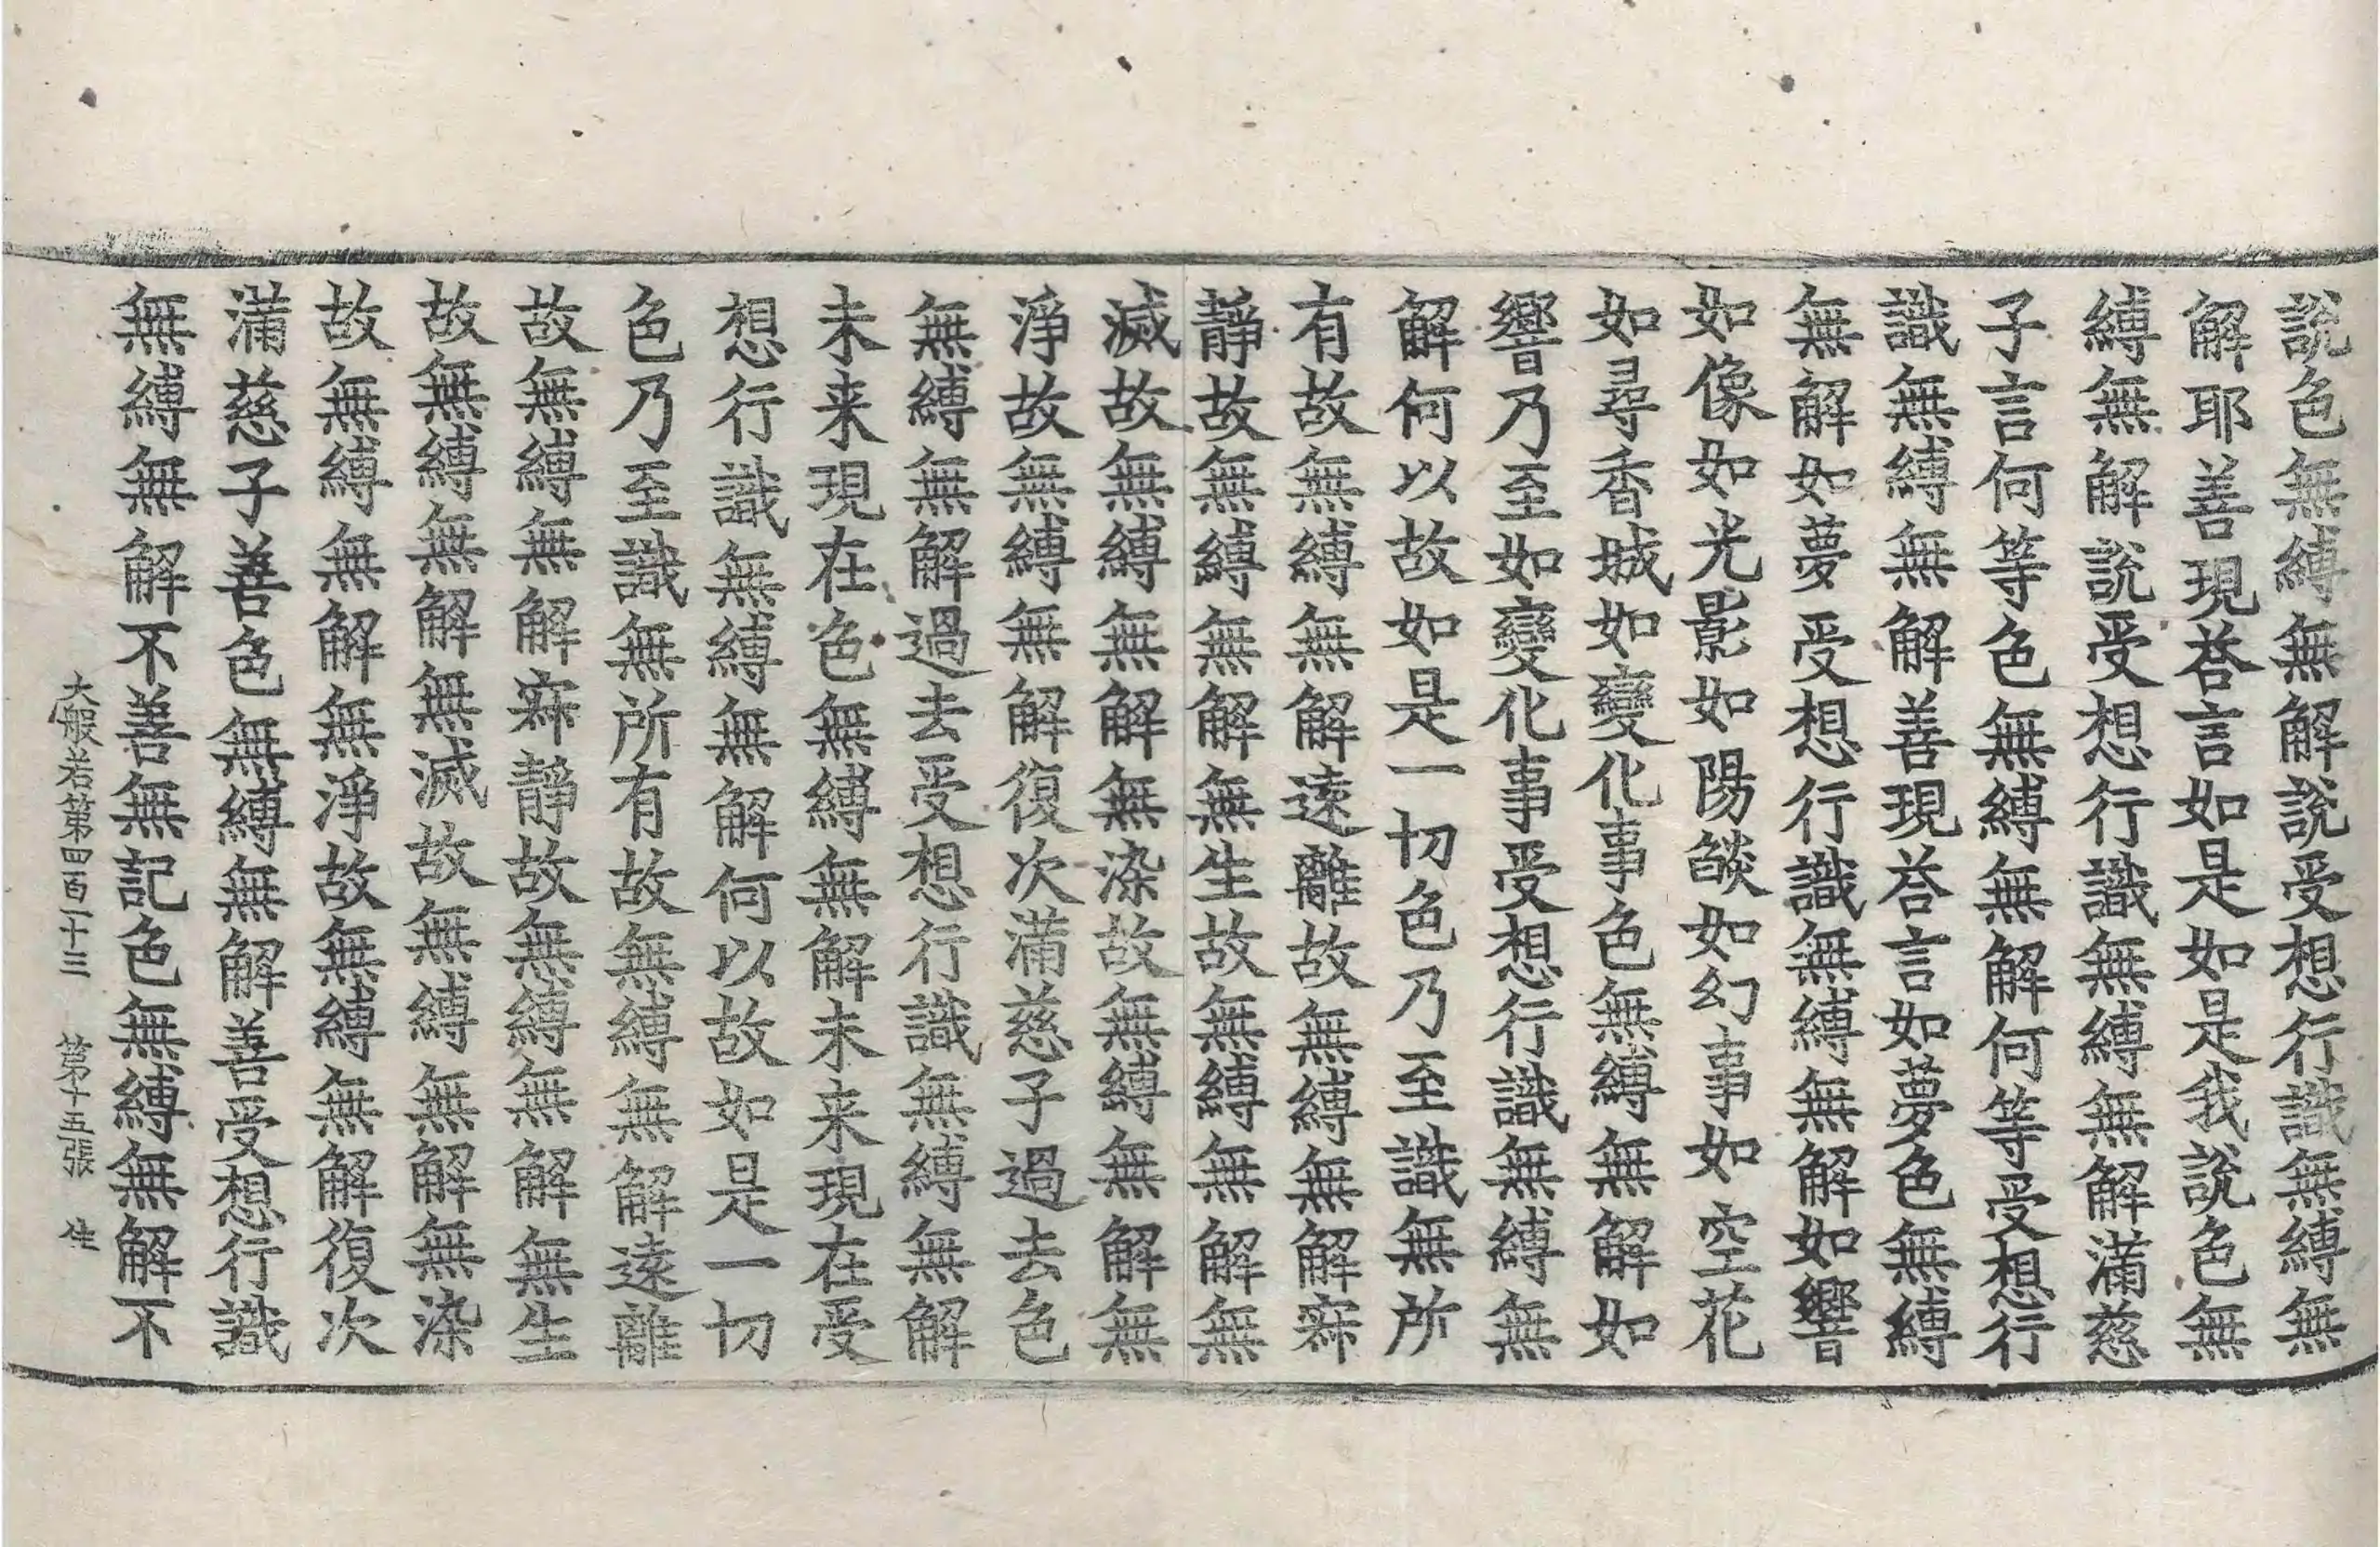 說色無縛無解說受想行識無縛無
解耶善現荅言如是如是我說色無
縛無解說受想行識無縛無解滿慈
子言何等色無縛無解何等受想行
識無縛無解善現荅言如夢色無縛
無解如夢受想行識無縛無解如響
如像如光影如陽焰如幻事如空花
如尋香城如變化事色無縛無解如
響乃至如變化事受想行識無縛無
解何以故如是一切色乃至識無所
有故無縛無解遠離故無縛無解寂
靜故無縛無解無生故無縛無解無
滅故無縛無解無染故無縛無解無
淨故無縛無解復次滿慈子過去色
無縛無解過去受想行識無縛無解
未来現在色無縛無解未来現在受
想行識無縛無解何以故如是一切
色乃至識無所有故無縛無解遠離
故無縛無解寂靜故無縛無解無生
故無縛無解無滅故無縛無解無染
故無縛無解無淨故無縛無解復次
滿慈子善色無縛無解善受想行識
無縛無解不善無記色無縛無解不
大般若第四百一十三 第十五張 生